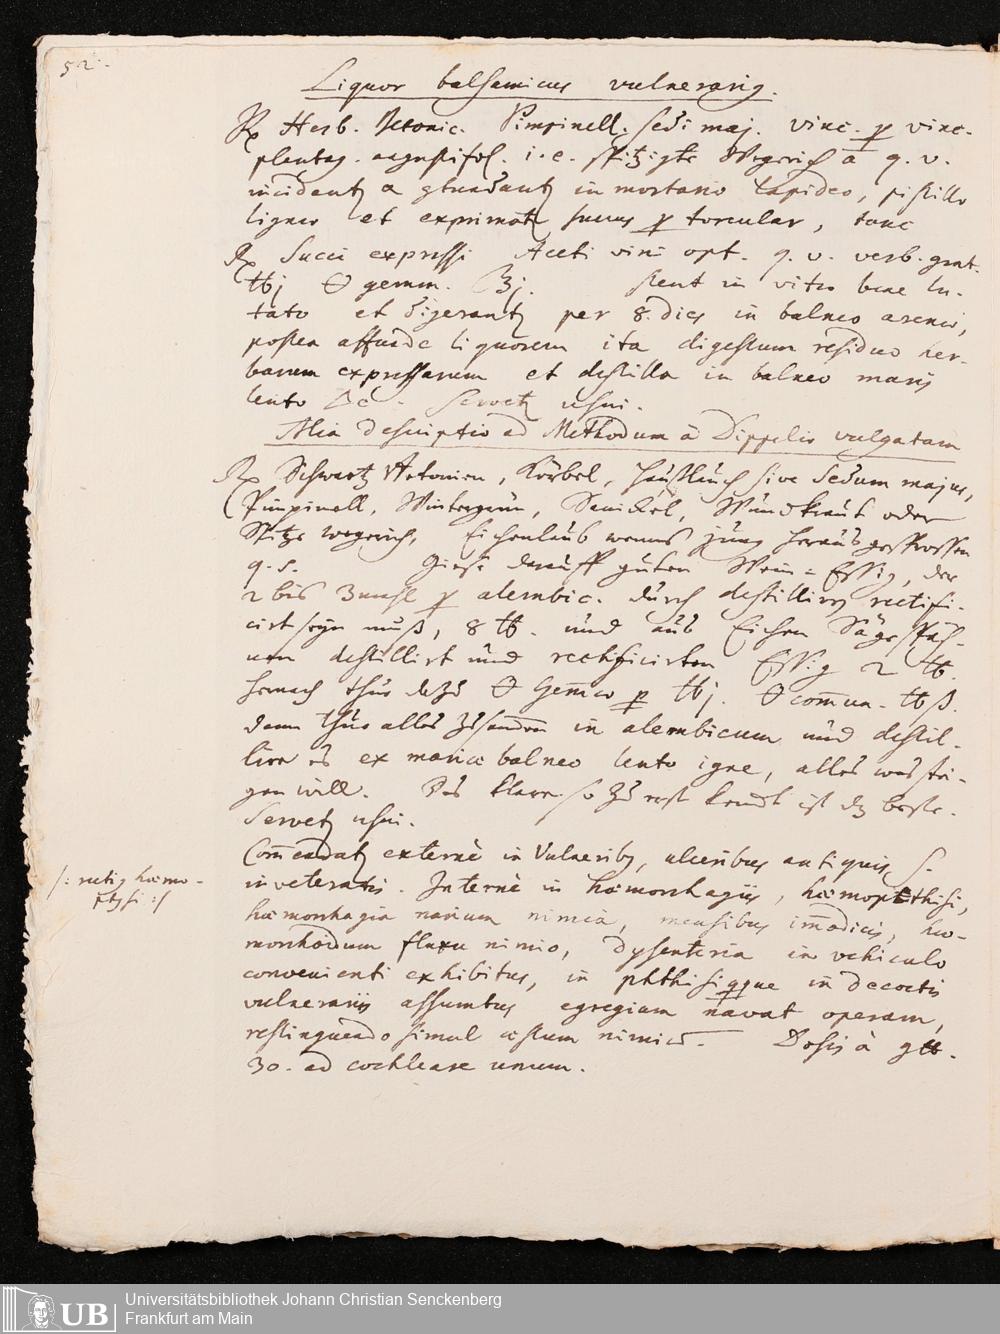 52.
Liquor balsamicus vulnerarig.
Rx Herb. Betonic. Pimpinell. sedi maj. vinc. p vinc.
plantag. angustifol. i. e. spitzigte Wegerich ā q. v.
incidantz & contundantz in mortario lapideo, pistillo
ligneo et exprimatz succus p torcular, tunc
Rx Succi expressi Aceti vini opt. q. v. verb. grat.
℔j gemm. ℥j. stent in vitro bene lu-
tato et digerantz per 8. dies in balneo arenae,
postea affunde liquorem ita digestum residuo her-
barum expressarum et destilla in balneo maris
lento Servetz usui.
Alia descriptio ad Methodum à Dippelio vulgatam
Rx Schwartz Betonien, Körbel, Haußlauch sive Sedum majus,
Pimpinell, Wintergrün, Sanickel, Wundkraut oder
Spitz wegerich, Eichenlaub wenns jung heraus gesprossen
q. s. Giesse darauff guten Wein-Essig, der
2 bis 3 mahl p alembic. durch destilliren rectifi-
cirt seyn muß, 8 ℔. und aus Eichen Sägespäh-
nen destillirt und rectificirten Essig 2 ℔.
hernach thue dazu Gem̄ae p ℔j. com̄un. ℔ß.
dann thue alles zusammen in alembicum und destil-
lire es ex mariae balneo lento igne, alles was stei-
gen will. Das klare so zu erst kom̄t ist dz beste.
Servetz usui.
Com̄endatz externè in Vulneribg, ulceribus antiquis, s.
inveteratis. Internè in hæmorrhagiis, hæmopthisi,
/: rectig hæmo-
ptysi :/
hæmorrhagia narium nimia, mensibus im̄odicis, hæ-
morrhoidum fluxu nimio, dysenteria in vehiculo
convenienti exhibitus, in phthisi qque in decoctis
vulnerariis assumtus egregiam navat operam,
restinguendo simul æstum nimiū. Dosis à gtt.
30. ad cochleare unum.
UB
Universitätsbibliothek Johann Christian Senckenberg
Frankfurt am Main